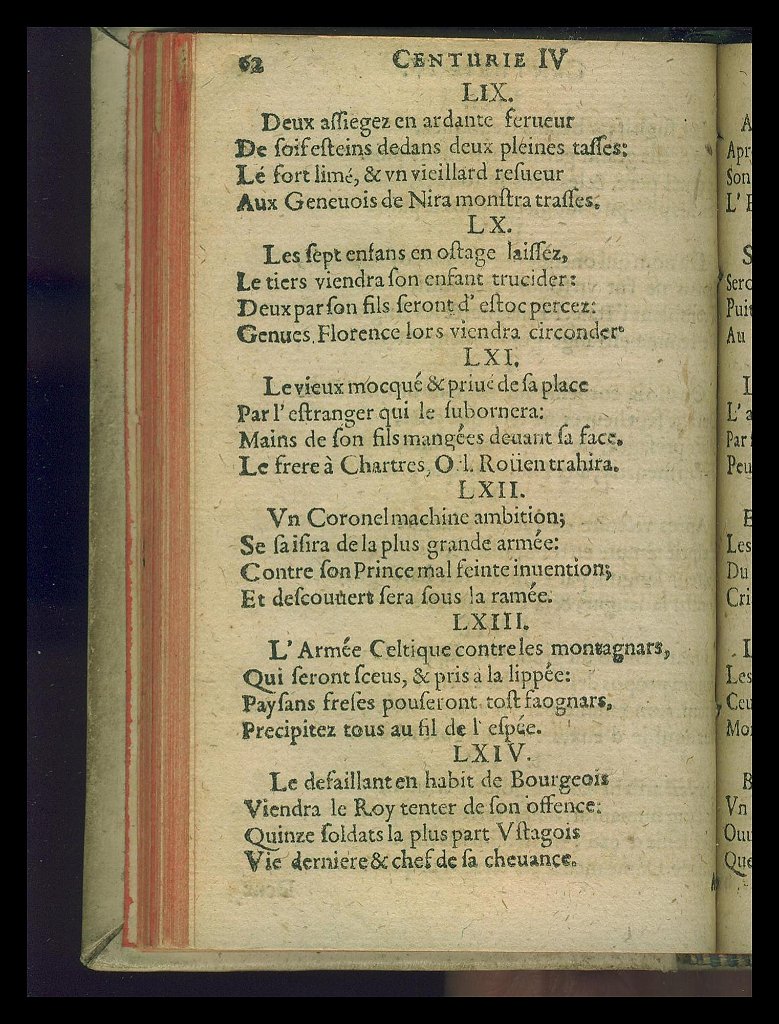 62 CENTURIE IV
LIX.
Deux aſſiegez en ardante ferueur
De ſoif eſteins dedans deux pleines taſſes:
Lé fort limé, & vn vieillard reſueur
Aux Geneuois de Nira monſtra traſſes.
LX.
Les ſept enfans en oſtage laiſſez,
Le tiers viendra ſon enfant trucider:
Deux par ſon fils ſeront d' eſtoc percez:
Genues, Florence lors viendra circonder.
LXI.
Le vieux mocqué & priué de ſa place
Par l' eſtranger qui le ſubornera:
Mains de ſon fils mangées deuant ſa face.
Le frere à Chartres, O.l. Roüen trahira.
LXII.
Vn Coronel machine ambition;
Se ſaiſira de la plus grande armée:
Contre ſon Prince mal feinte inuention;
Et deſcouuert ſera ſous la ramée.
LXIII.
L' Armée Celtique contre les montagnars,
Qui ſeront ſceus, & pris à la lippée:
Payſans freſes pouſeront toſt faognars,
Precipitez tous au fil de l' eſpée.
LXIV.
Le defaillant en habit de Bourgeois
Viendra le Roy tenter de ſon offence:
Quinze ſoldats la plus part Vſtagois
Vie derniere & chef de ſa cheuance.
A
Apr
Son
L'
S
Sero
Puiſ
Au
L
L'a
Par
Peu
E
Les
Du
Cri
L
Les
Ceu
Mo
B
Vn
Ouu
Que